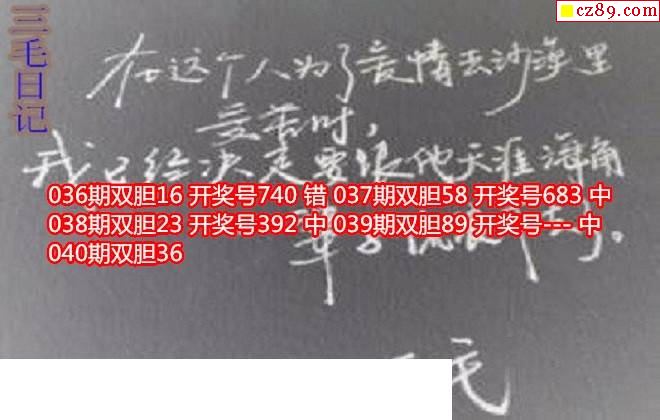 cz89.com
三毛日记
在这个人为了爱情去沙漠里
受苦时，
我已经决定要跟他天涯海角
036期双胆16 开奖号740 错 037期双胆58 开奖号683 中
038期双胆23 开奖号392 中 039期双胆89 开奖号--- 中
040期双胆36
毛